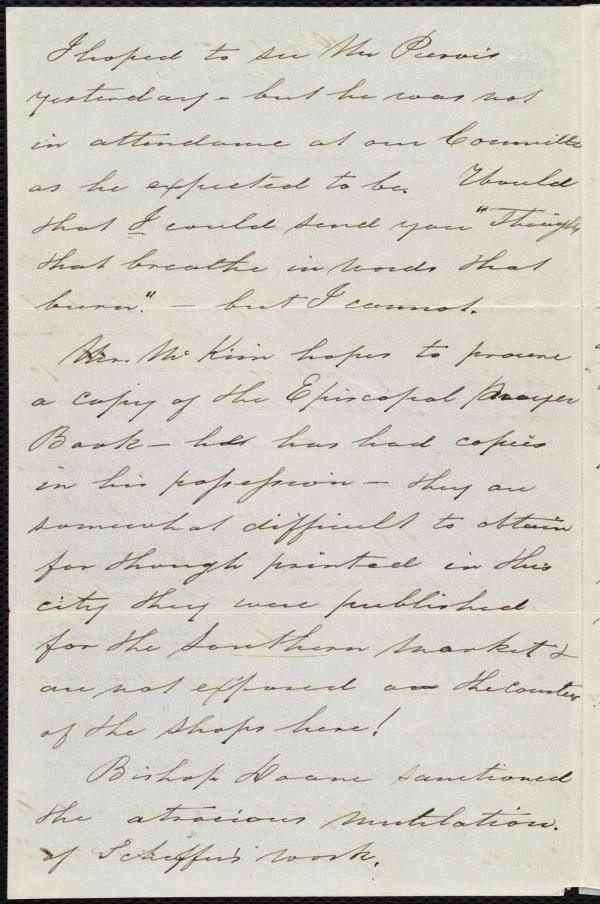 I hoped to see Mr Purvis
yesterday - but he was not
in attendance at our Committee
as he expected to be. Would
that I could send you "Thoughts
that breathe in words that
burn." - but I cannot.
Mr. McKim hopes to procure
a copy of the Episcopal prayer
Book - he has had copies
in his possession - they are
somewhat difficult to obtain
for though printed in this
city they were published
for the Southern market &
are not exposed on the counters
of the shops here!
Bishop Doane sanctioned
the atrocious mutilation.
of Scheffer's work.